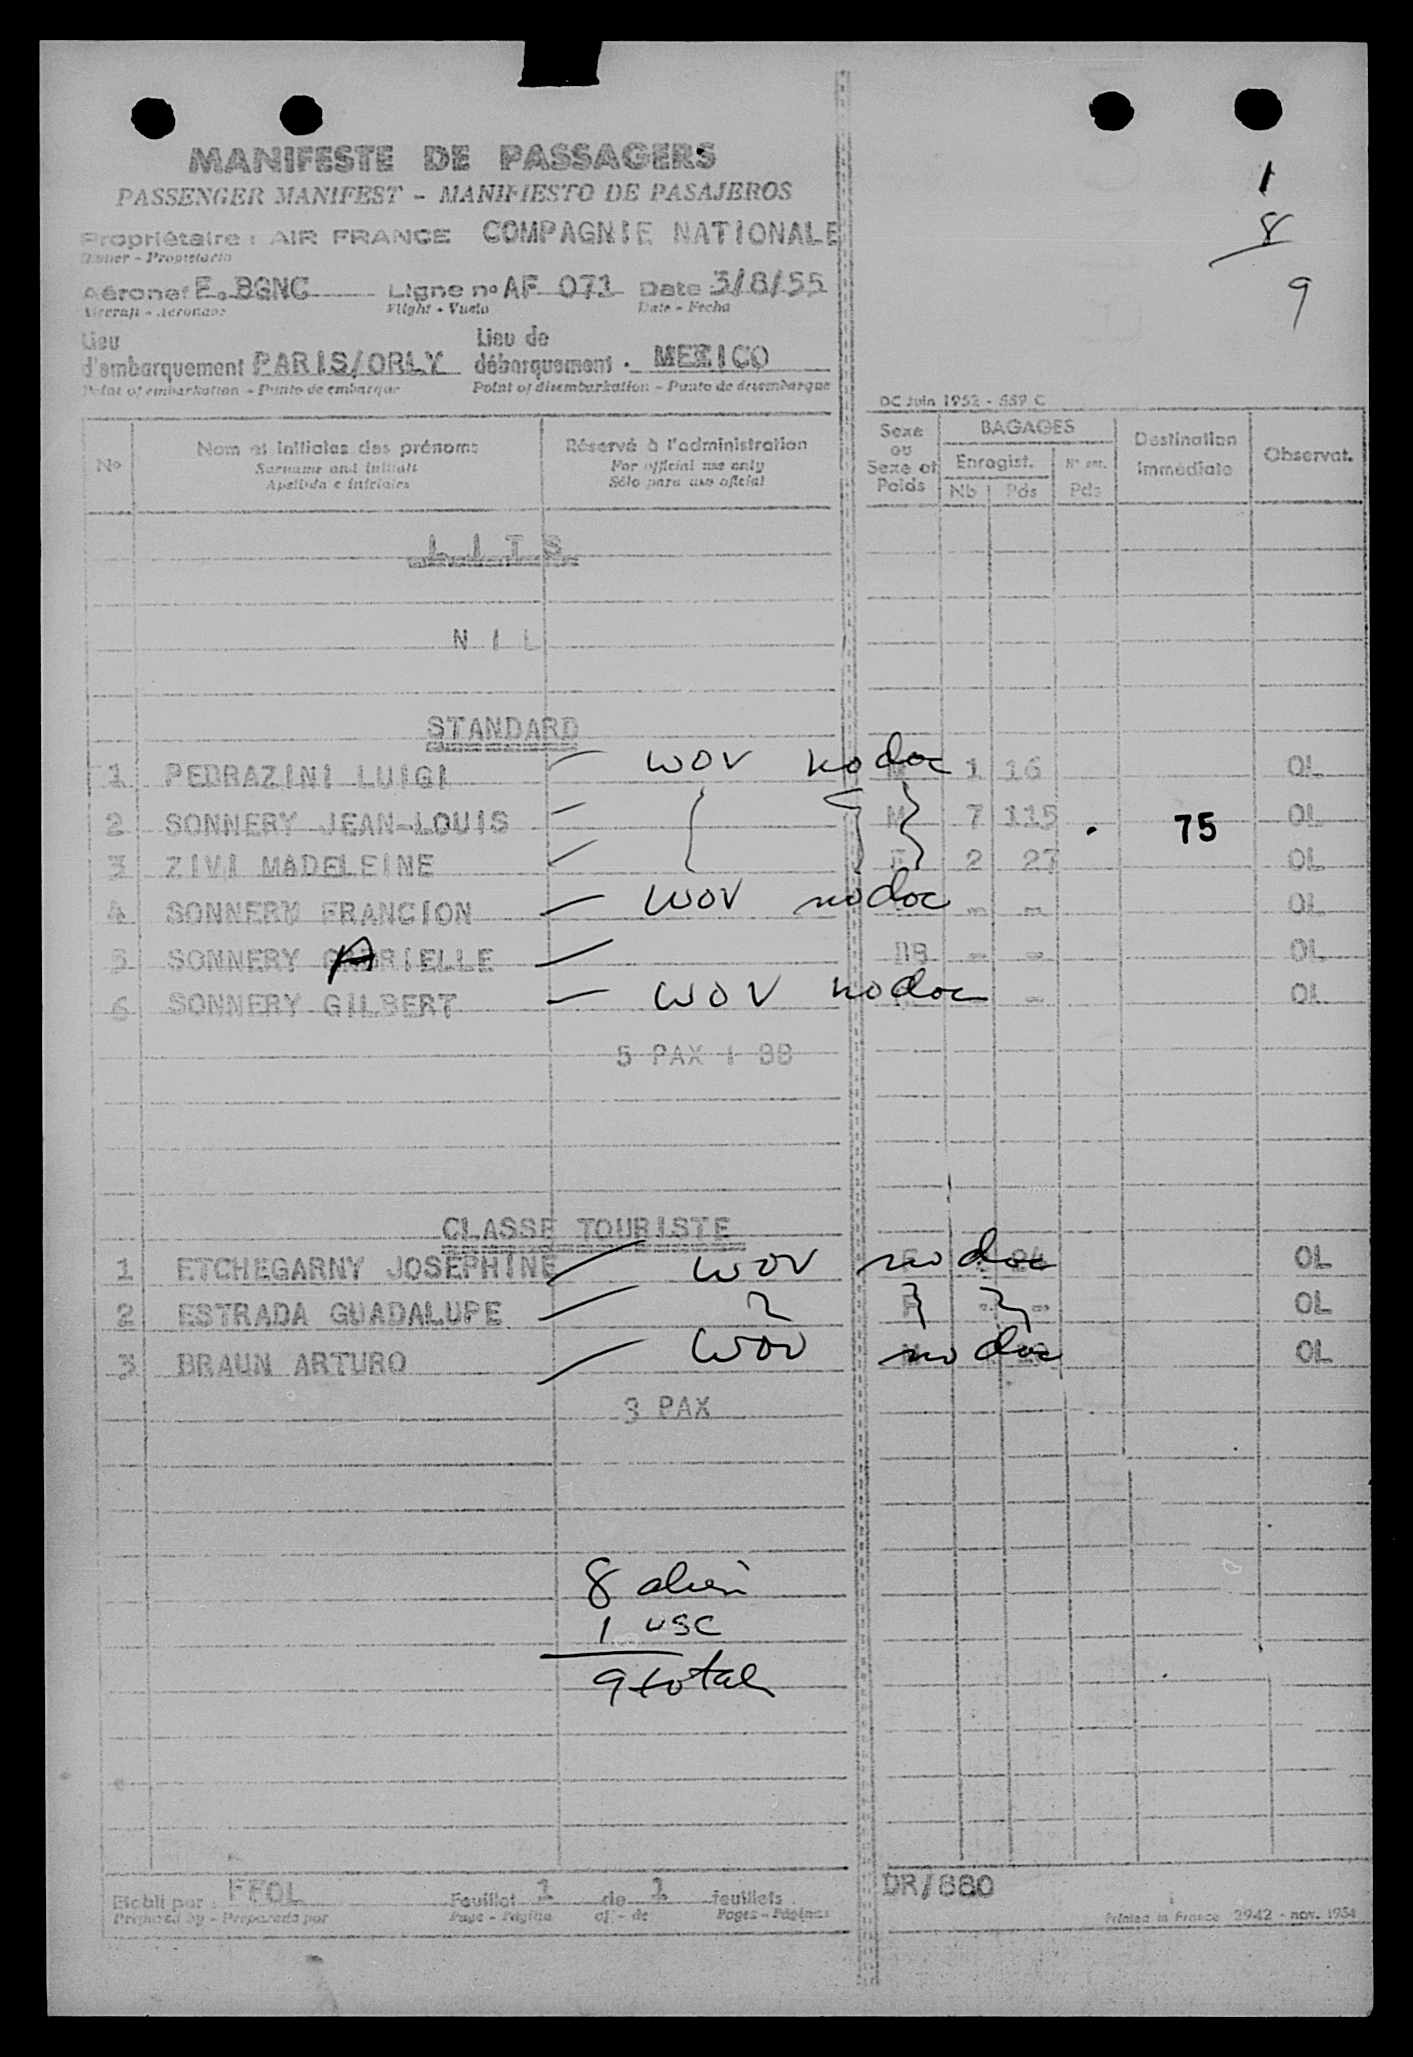 1
8
9
MANIFESTE DE PASSAGERS
PASSENGER MANIFEST - MANIFIESTO DE PASAJEROS
Propriétaire : AIR FRANCE COMPAGNIE NATIONALE
Owner - Propietario
Aéronef F.BGNC Ligne no AF 071 Date 3/8/55
Aircraft - Aeronave Flight - Vuelo Date - Fecha
Lieu d'embarquement PARIS/ORLY Lieu de débarquement . MEXICO
Point of embarkation - Punto de embarque Point of disembarkation - Punto de desembarque
DC Juin 1952 - 559 C
No Nom et initiales des prénoms Réservé à l'administration Sexe ou Sexe et Poids BAGAGES Destination immédiate Observat.
Surname and initials For official use only Enregist. N* ent.
Apellido e iniciales Sólo para uso oficial Nb Pds Pds
L I T S
N I L
STANDARD
1 PEDRAZINI LUIGI — WOV no doc M 1 16 OL
2 SONNERY JEAN-LOUIS — M 7 115 75 OL
3 ZIVI MADELEINE F 2 27 OL
4 SONNERY FRANCION — WOV no doc - - OL
5 SONNERY GABRIELLE — BB - - OL
6 SONNERY GILBERT — WOV no doc - OL
5 PAX 1 BB
CLASSE TOURISTE
1 ETCHEGARNY JOSEPHINE WOV no doc F 24 OL
2 ESTRADA GUADALUPE F - - OL
3 BRAUN ARTURO WOV no doc OL
3 PAX
8 alien
1 USC
9 total
Etabli par : FFOL Feuillet 1 de 1 feuillets DR/880
Prepared by - Preparado por Page - Página of - de Pages - Páginas Printed in France 2942 - nov. 1954